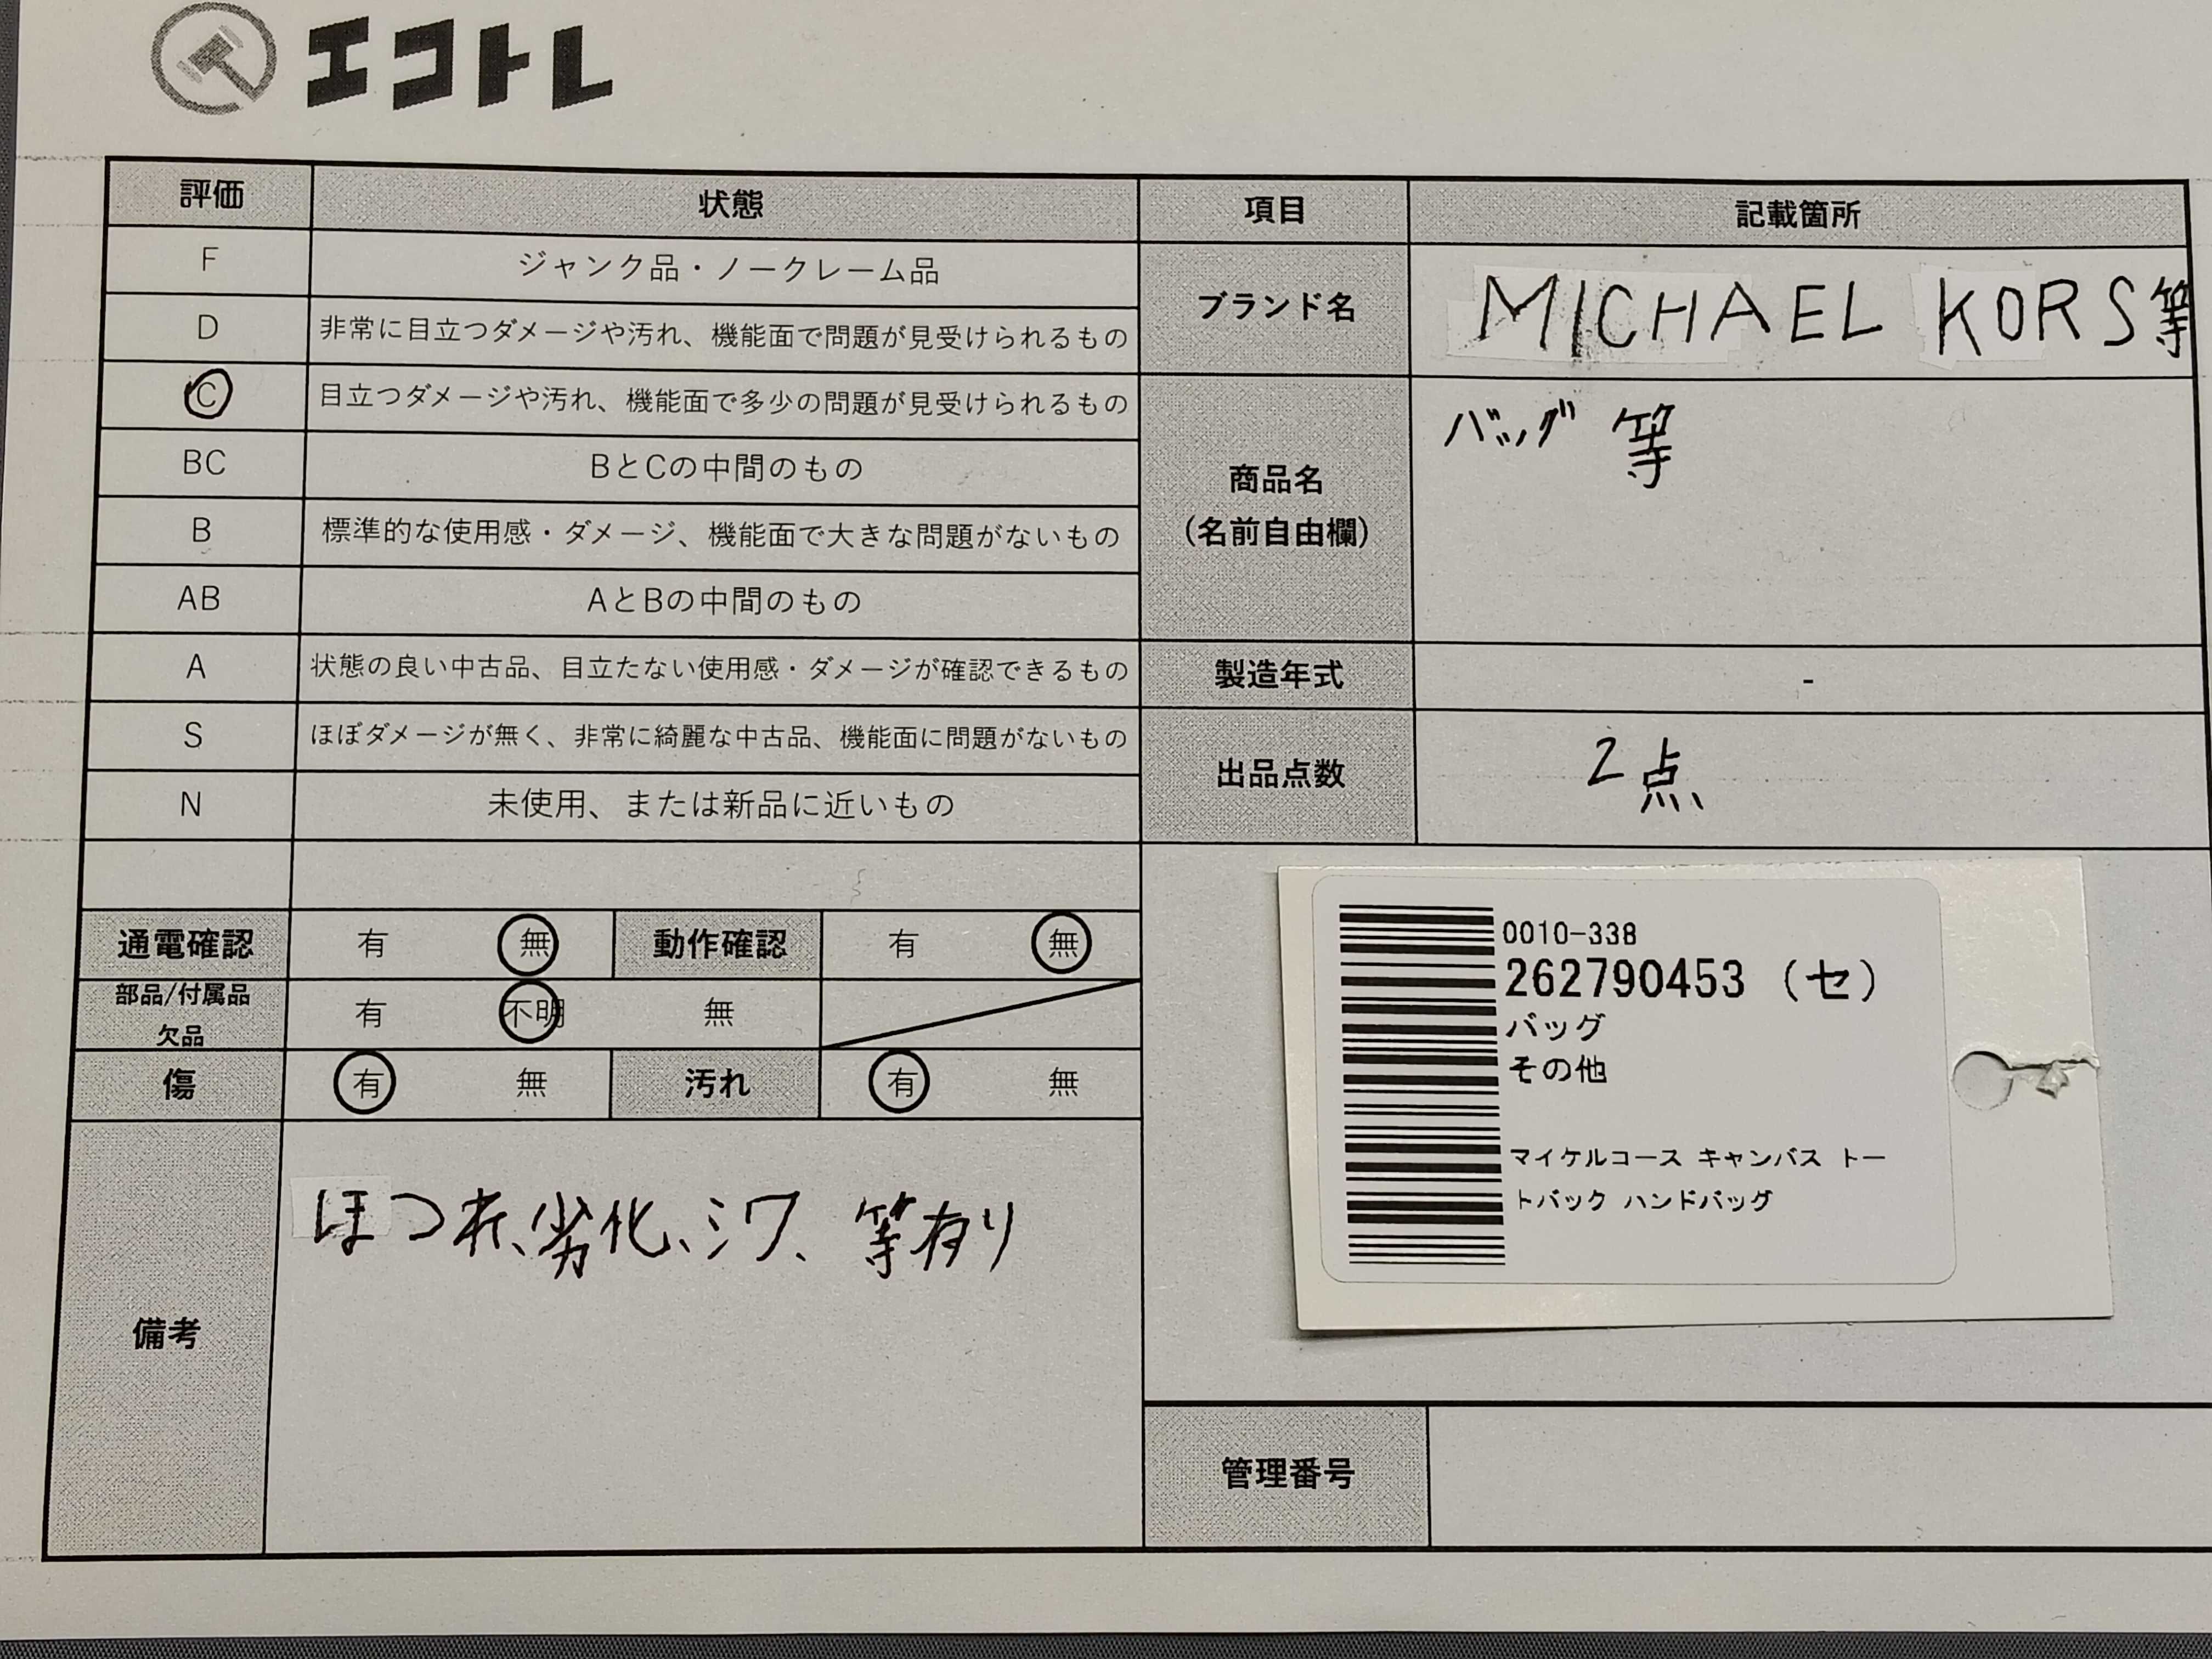 エコトレ
評価 状態 項目 記載箇所
F ジャンク品・ノークレーム品
D 非常に目立つダメージや汚れ、機能面で問題が見受けられるもの
C 目立つダメージや汚れ、機能面で多少の問題が見受けられるもの
BC BとCの中間のもの
B 標準的な使用感・ダメージ、機能面で大きな問題がないもの
AB AとBの中間のもの
A 状態の良い中古品、目立たない使用感・ダメージが確認できるもの
S ほぼダメージが無く、非常に綺麗な中古品、機能面に問題がないもの
N 未使用、または新品に近いもの
ブランド名 MICHAEL KORS等
商品名
(名前自由欄)
バッグ 等
製造年式 -
出品点数 2点
通電確認 有 無 動作確認 有 無
部品/付属品
欠品
有 不明 無
傷 有 無 汚れ 有 無
備考
ほつれ、劣化、シワ、等有り
0010-338
262790453 (セ)
バッグ
その他
マイケルコース キャンバス トー
トバック ハンドバッグ
管理番号